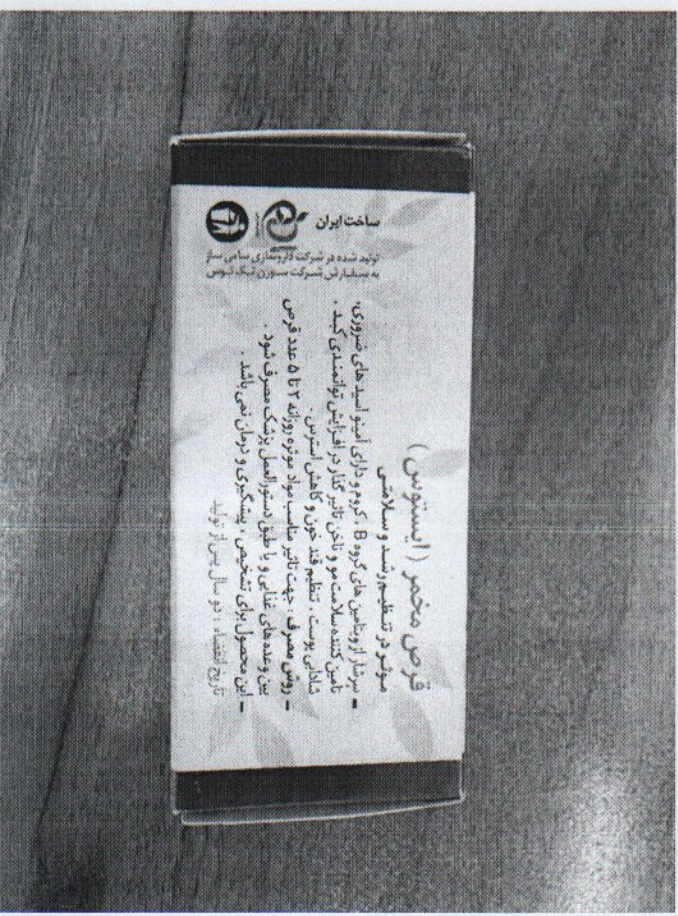 قرص مخمر ( ایستوس )
موثر در تنظیم رشد و سلامتی
- سرشار از ویتامین های گروه B ، کروم و دارای آمینو اسید های ضروری،
تامین کننده سلامت مو و ناخن تاثیر گذار در افزایش توانمندی کبد .
شادابی پوست ، تنظیم قند خون و کاهش استرس .
- روش مصرف : جهت تاثیر مناسب مواد موثره روزانه ۲ تا ۵ عدد قرص
بین وعده های غذایی و یا طبق دستورالعمل پزشک مصرف شود .
- این محصول برای تشخیص ، پیشگیری و درمان نمی باشد .
تاریخ انقضاء : دو سال پس از تولید
ساخت ایران
تولید شده در شرکت داروسازی سامی ساز
به سفارش شرکت سوزن تک توس